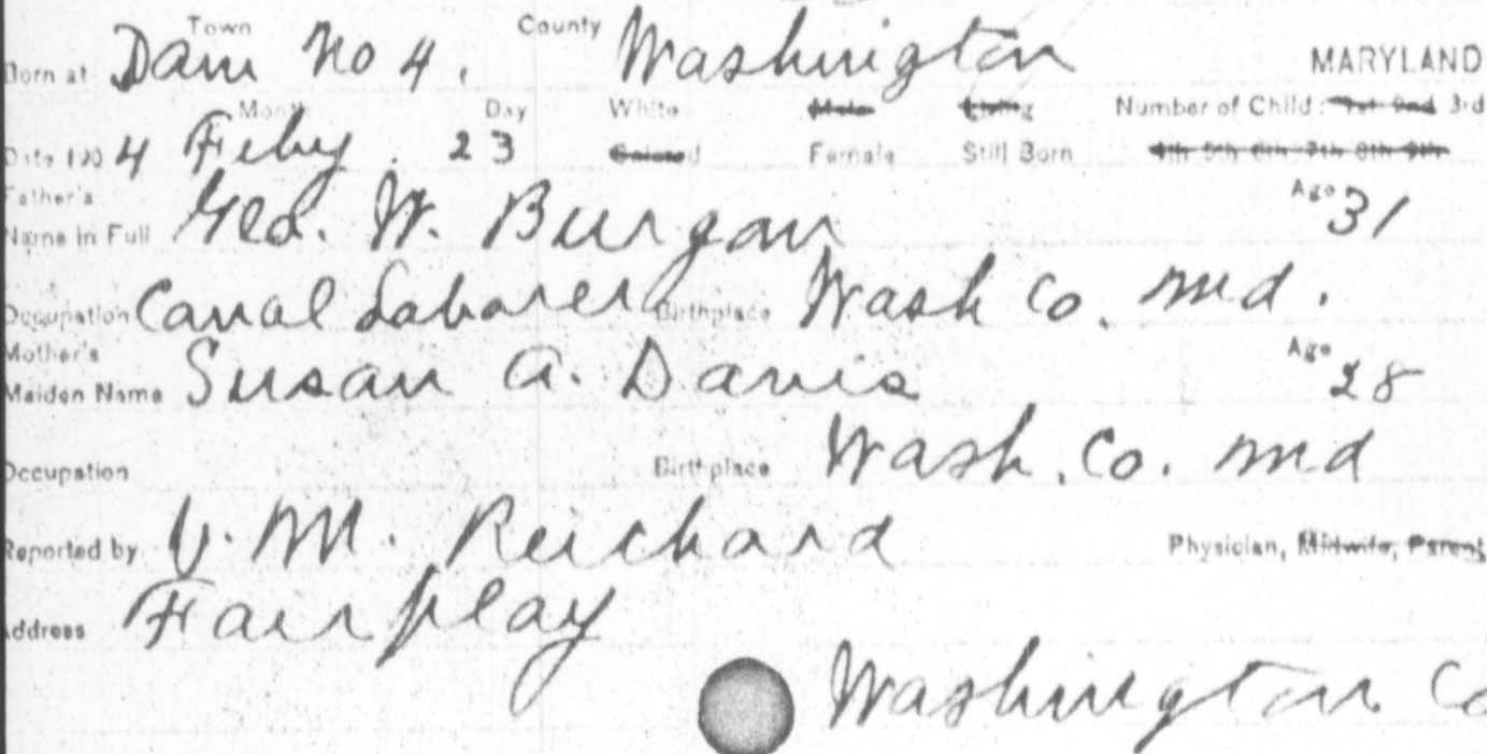 Town County
Born at Dam No 4. Washington MARYLAND
Month Day White Male Living Number of Child: 1st 2nd 3rd
Date 190 4 Feby. 23 Colored Female Still Born 4th 5th 6th 7th 8th 9th
Father's
Name in Full Geo. W. Burgan Age 31
Occupation Canal Laborer Birthplace Wash Co. Md.
Mother's
Maiden Name Susan A. Davis Age 28
Occupation Birthplace Wash. Co. Md
Reported by V. M. Reichard Physician, Midwife, Parent
Address Fairplay
Washington Co